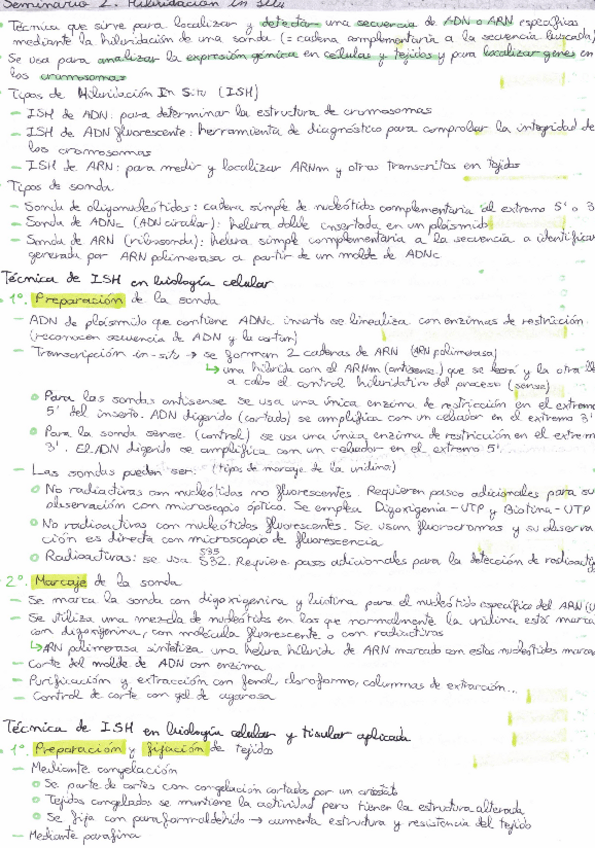 Seminario 2. Hibridación in situ
Técnica que sirve para localizar y detectar una secuencia de ADN o ARN específicas
mediante la hibridación de una sonda (= cadena complementaria a la secuencia buscada)
Se usa para analizar la expresión génica en células y tejidos y para localizar genes en
los cromosomas
Tipos de Hibridación In Situ (ISH)
- ISH de ADN: para determinar la estructura de cromosomas
- ISH de ADN fluorescente: herramienta de diagnóstico para comprobar la integridad de
los cromosomas
- ISH de ARN: para medir y localizar ARNm y otros transcritos en tejidos
Tipos de sonda
- Sonda de oligonucleótidos: cadena simple de nucleótidos complementaria al extremo 5' o 3
- Sonda de ADNc (ADN circular): hebra doble insertada en un plásmido
- Sonda de ARN (ribosonda): hebra simple complementaria a la secuencia a identificar
generada por ARN polimerasa a partir de un molde de ADNc
Técnica de ISH en biología celular
1º. Preparación de la sonda
- ADN de plásmido que contiene ADNc inserto se linealiza con enzimas de restricción
(reconocen secuencia de ADN y la cortan)
- Transcripción in-situ → se forman 2 cadenas de ARN (ARN polimerasa)
↳ una híbrida con el ARNm (antisense) que se leerá y la otra
a cabo el control hibridativo del proceso (sense)
Para las sondas antisense se usa una única enzima de restricción en el extremo
5' del inserto. ADN digerido (cortado) se amplifica con un cebador en el extremo 3'
Para la sonda sense (control) se usa una única enzima de restricción en el extrem
3'. El ADN digerido se amplifica con un cebador en el extremo 5'.
- Las sondas pueden ser: (tipos de marcaje de la uridina)
No radiactivas con nucleótidos no fluorescentes. Requieren pasos adicionales para su
observación con microscopio óptico. Se emplea Digoxigenia-UTP y Biotina-UTP
No radioactivas con nucleótidos fluorescentes. Se usan fluorocromas y su observa
ción es directa con microscopio de fluorescencia
Radioactivas: se usa S35 S32. Requiere pasos adicionales para la detección de radioactiv
2º. Marcaje de la sonda
- Se marca la sonda con digoxigenina y biotina para el nucleótido específico del ARN (U
- Se utiliza una mezcla de nucleótidos en los que normalmente la uridina está marca
con digoxigenina, con molécula fluorescente o con radiactivos
↳ ARN polimerasa sintetiza una hebra híbrida de ARN marcado con estos nucleótidos marca
- Corte del molde de ADN con enzima
- Purificación y extracción con fenol, cloroformo, columnas de extracción...
- Control de corte con gel de agarosa
Técnica de ISH en biología celular y tisular aplicada
1º. Preparación y fijación de tejidos
- Mediante congelación
Se parte de cortes con congelación cortados por un criostato
Tejidos congelados se mantiene la actividad pero tienen la estructura alterada
Se fija con paraformaldehido → aumenta estructura y resistencia del tejido
- Mediante parafina